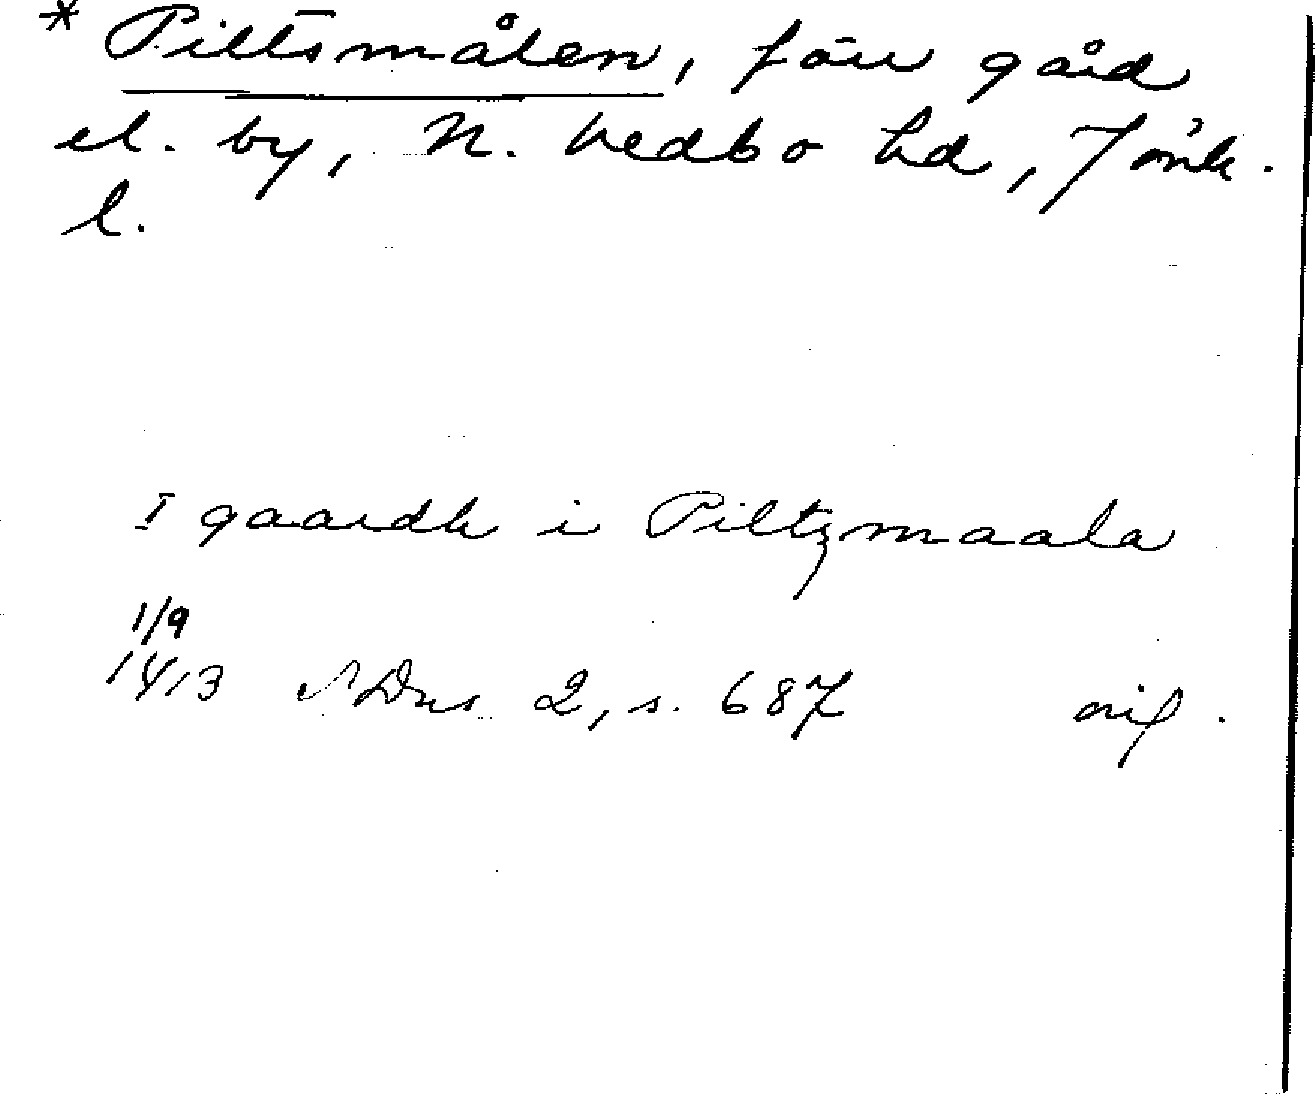 * Piltsmålen, förr gård
el. by, N. Vedbo hd, Jönk.
l.
I gaardh i Piltzmaala
1/9
1413 SDns 2, s. 687 orig.